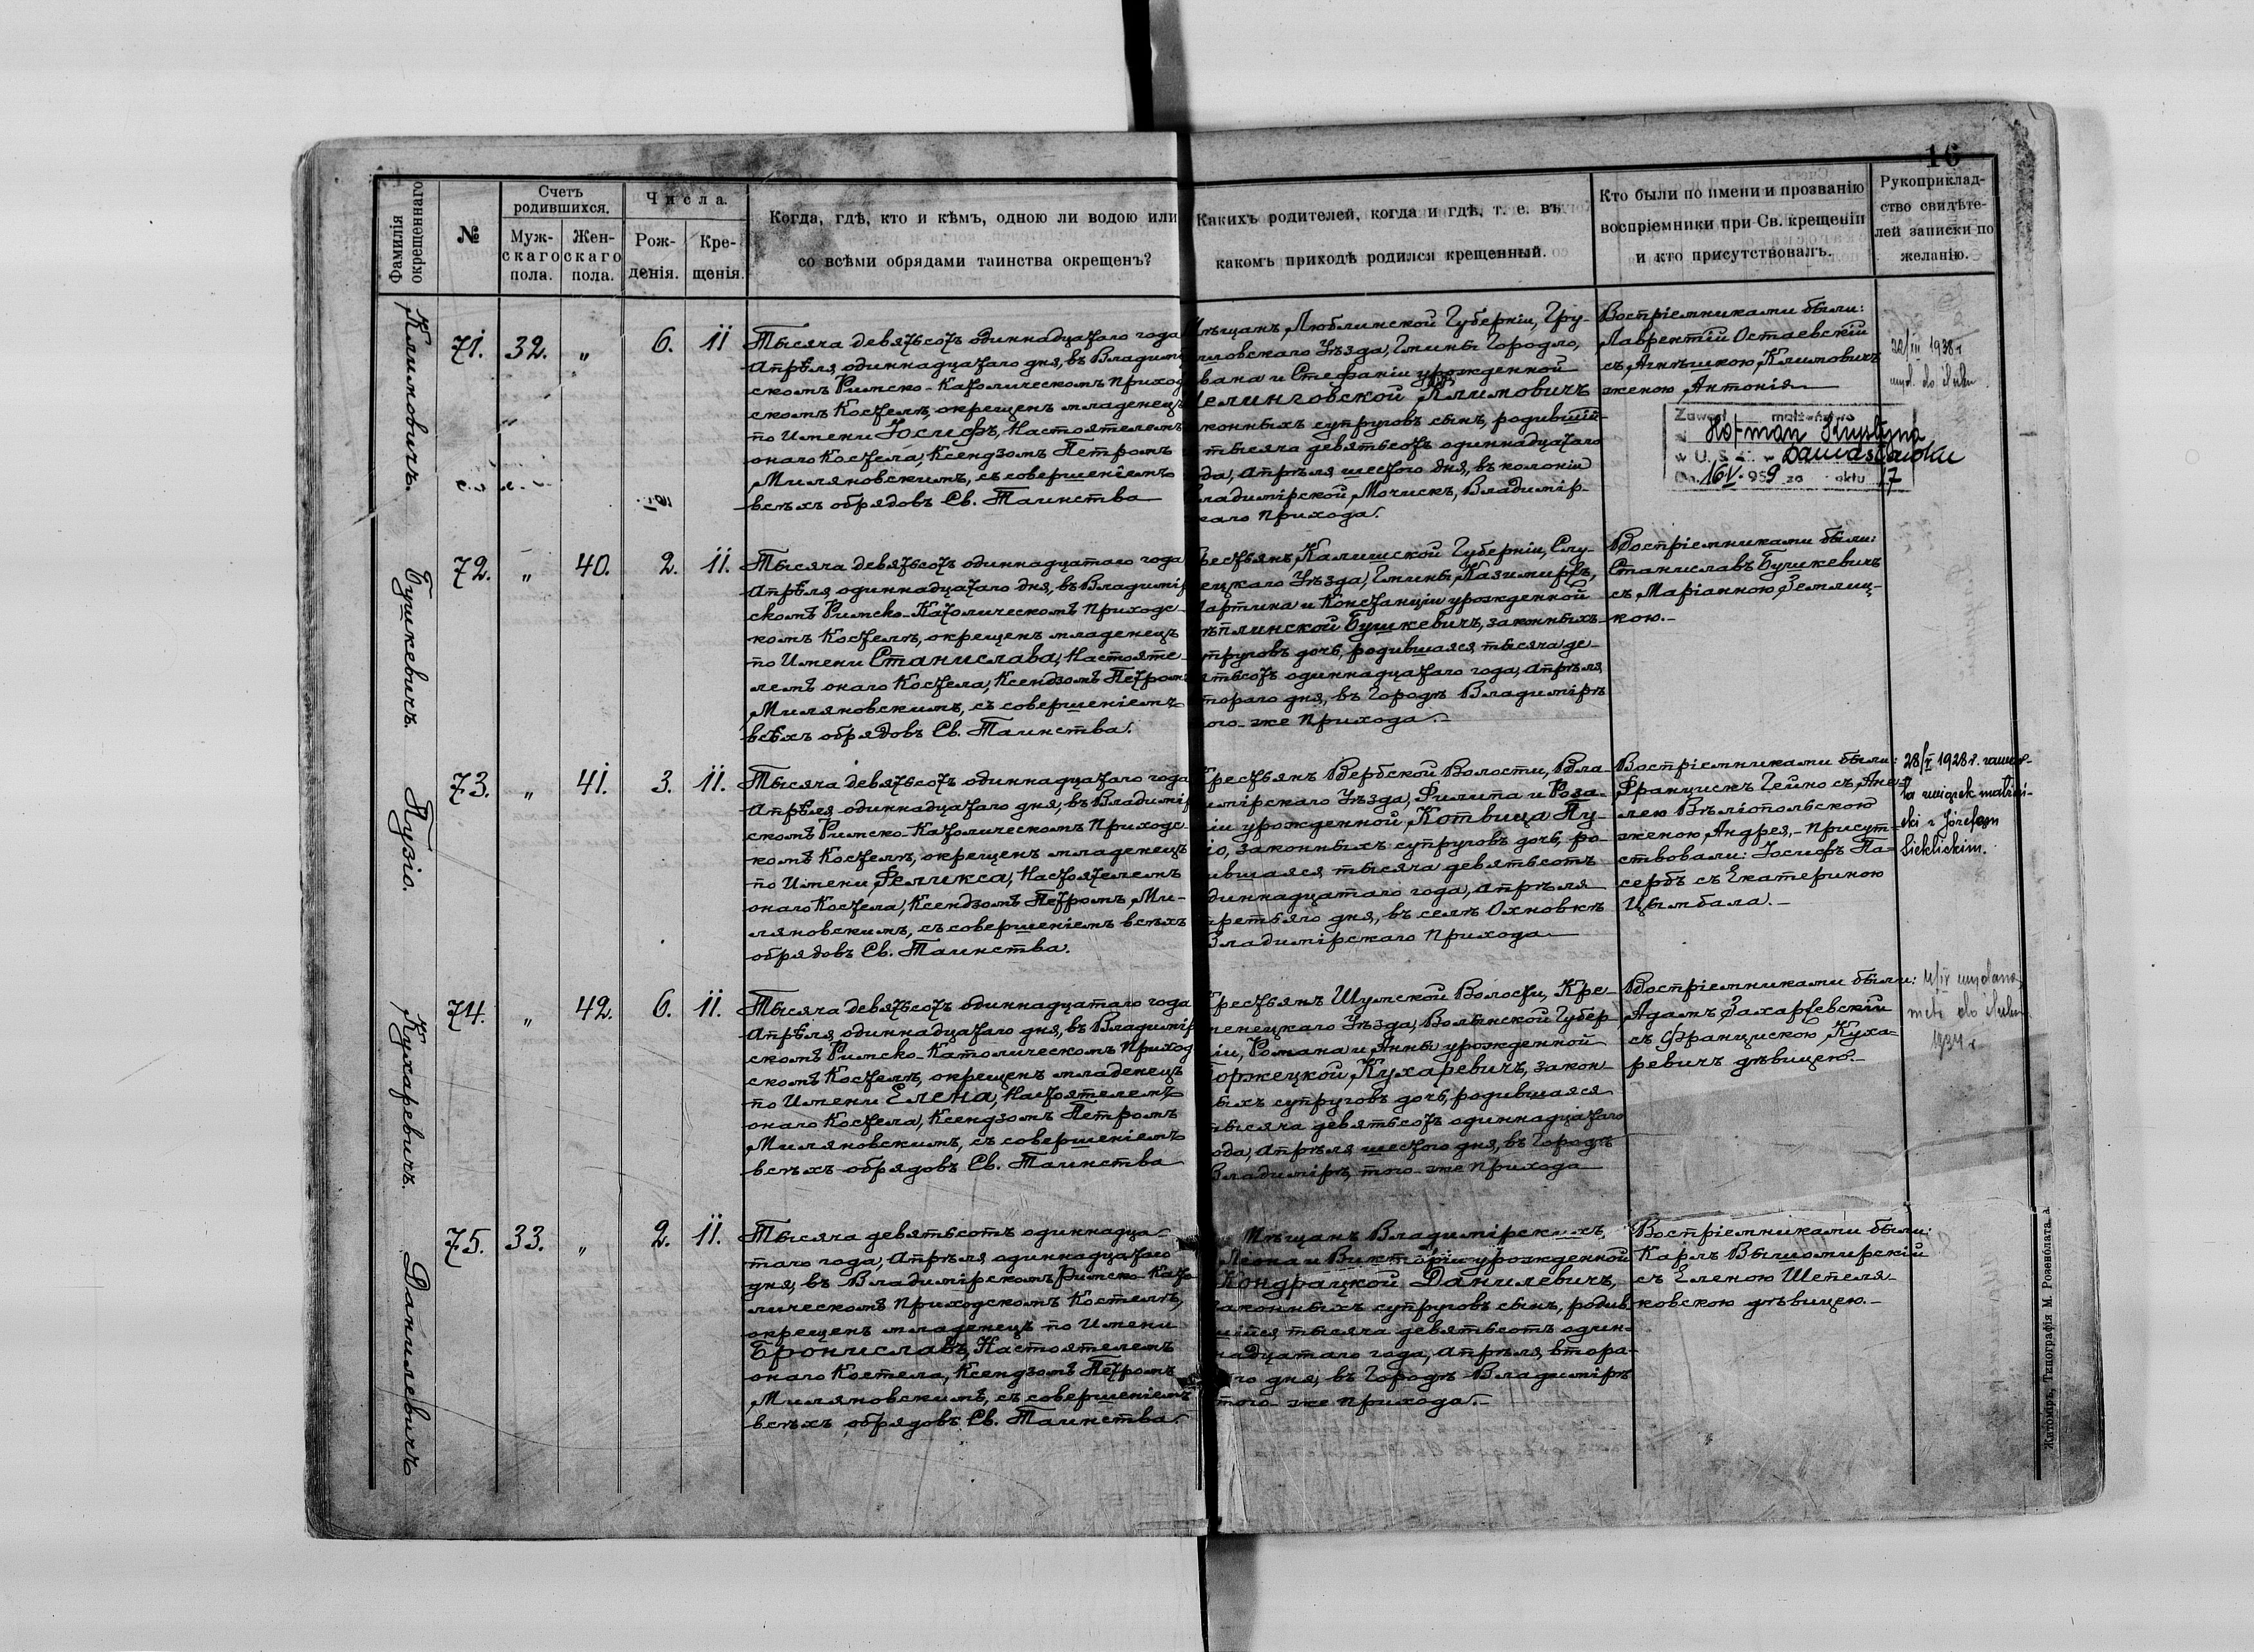 16
Фамилія окрещеннаго
№
Счетъ родившихся.
Мужскаго пола.
Женскаго пола.
Числа.
Рожденія.
Крещенія.
Когда, гдѣ, кто и кѣмъ, одною ли водою или
со всѣми обрядами таинства окрещенъ?
Какихъ родителей, когда и гдѣ, т. е. въ
какомъ приходѣ родился крещенный.
Кто были по имени и прозванію
воспріемники при Св. крещеніи
и кто присутствовалъ.
Рукоприклад-
ство свидѣте-
лей записки по
желанію.
Климовичъ.
71. 32. „ 6. 11
Тысяча девятьсотъ одиннадцатаго года
Апрѣля одиннадцатаго дня, въ Владимі
скомъ Римско-Католическомъ Приход
скомъ Костелѣ, окрещенъ младенецъ
по Имени Іосифъ, Настоятелемъ
онаго Костела, Ксендзомъ Петромъ
Миляновскимъ, съ совершеніемъ
всѣхъ обрядовъ Св. Таинства
Мѣщанъ, Люблинской Губерніи, Гру-
шовскаго Уѣзда, Гмины Городло,
вана и Стефаніи урожденной
Климовичъ
конныхъ супруговъ сынъ, родившій-
тысяча девятьсотъ одиннадцатаго
да, Апрѣля шестого дня, въ колоніи
ладимірской Мочискъ, Владимір-
скаго Прихода.
Воспріемниками были:
Лаврентій Остаевскій
съ Агнѣшкою Климовичъ
женою Антонія
22/III 1938 r.
wyd. do ślubu
Zawarł małżeństwo
z Hofman Krystyna
w U.S.C. w
Dn. 16 V. 959 za aktu 17
Бушкевичъ.
72. „ 40. 2. 11.
Тысяча девятьсотъ одиннадцатаго года
Апрѣля одиннадцатаго дня, въ Владимір
скомъ Римско-Католическомъ Приходс-
комъ Костелѣ, окрещенъ младенецъ
по Имени Станислава, Настояте-
лемъ онаго Костела, Ксендзомъ Петромъ
Миляновскимъ, съ совершеніемъ
всѣхъ обрядовъ Св. Таинства.
рестьянъ, Калишской Губерніи, Слу-
ецкаго Уѣзда, Гмины Казимиржъ,
артина и Констанціи урожденной
плинской Бушкевичъ, законныхъ
упруговъ дочь, родившаяся тысяча де-
ятьсотъ одиннадцатаго года, Апрѣля
тораго дня, въ Городѣ Владимірѣ
ого-же Прихода.
Воспріемниками были:
Станиславъ Бушкевичъ
съ Маріанною Землиц-
кою.
Пузіо.
73. „ 41. 3. 11.
Тысяча девятьсотъ одиннадцатаго года
Апрѣля одиннадцатаго дня, въ Владимір
скомъ Римско-Католическомъ Приходс
комъ Костелѣ, окрещенъ младенецъ
по Имени Феликса, Настоятелемъ
онаго Костела, Ксендзомъ Петромъ Ми-
ляновскимъ, съ совершеніемъ всѣхъ
обрядовъ Св. Таинства.
рестьянъ Вербской Волости, Вла-
имірскаго Уѣзда, Филипа и Роза-
іи урожденной Котвица Пу-
іо, законныхъ супруговъ дочь, ро-
ившаяся тысяча девятьсотъ
диннадцатаго года, Апрѣля
ретьяго дня, въ селѣ Охновкѣ
Владимірскаго Прихода
Воспріемниками были:
Францискъ Гейно съ Ане-
лею Вѣліопольскою
женою Андрея, - Присут-
ствовали: Іосифъ Па-
сербъ съ Екатериною
Цымбала.
28/I 1928 r. zawar-
ła związek małżeń-
ski z Józefem
Sieklickim.
Кухаревичъ.
74. „ 42. 6. 11.
Тысяча девятьсотъ одиннадцатаго года
Апрѣля одиннадцатаго дня, въ Владимір
скомъ Римско-Католическомъ Приход
скомъ Костелѣ, окрещенъ младенецъ
по Имени Елена, Настоятелемъ
онаго Костела, Ксендзомъ Петромъ
Миляновскимъ, съ совершеніемъ
всѣхъ обрядовъ Св. Таинства
рестьянъ Шумской Волости, Кре-
менецкаго Уѣзда, Волынской Губер-
іи, Романа и Анны урожденной
оржецкой Кухаревичъ, закон-
ыхъ супруговъ дочь, родившаяся
тысяча девятьсотъ одиннадцатаго
ода, Апрѣля шестого дня, въ Городѣ
Владимірѣ, того-же Прихода
Воспріемниками были:
Адамъ Захаржевскій
съ Францискою Куха-
ревичъ дѣвицею.
wydano
metr. do ślubu
1934 r.
Данилевичъ
75. 33. „ 2. 11.
Тысяча девятьсотъ одиннадца-
таго года, Апрѣля одиннадцатаго
дня, въ Владимірскомъ Римско-Като
лическомъ Приходскомъ Костелѣ,
окрещенъ младенецъ по Имени
Брониславъ, Настоятелемъ
онаго Костела, Ксендзомъ Петромъ
Миляновскимъ, съ совершеніемъ
всѣхъ обрядовъ Св. Таинства.
Мѣщанъ Владимірскихъ,
Леона и Викторіи урожденной
Кондрацкой Данилевичъ,
законныхъ супруговъ сынъ, родив
шійся тысяча девятьсотъ один-
надцатаго года, Апрѣля втора-
го дня, въ Городѣ Владимірѣ
того-же Прихода.
Воспріемниками были:
Карлъ Вышомирскій
съ Еленою Шепеля-
ковскою дѣвицею.
Житоміръ, Типографія М. Розенблата.